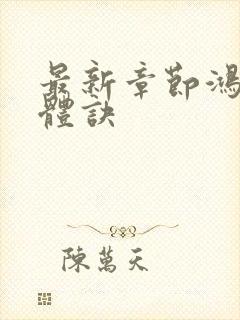 最新章節鴻
體訣
陳萬天